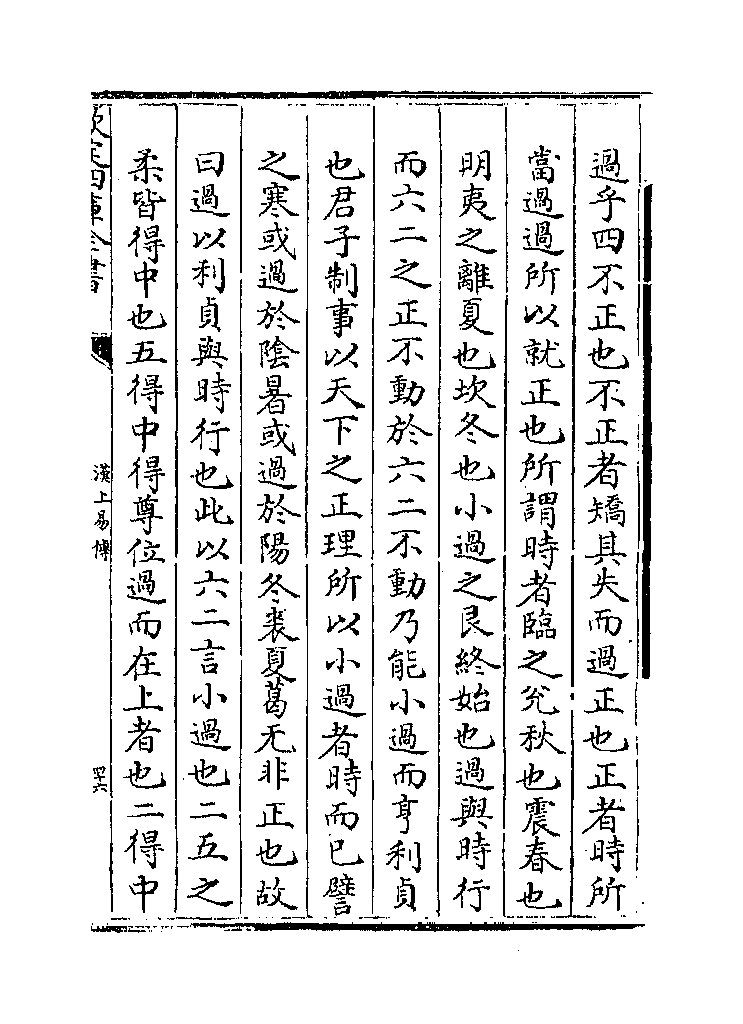 過乎四不正也不正者矯其失而過正也正者時所
當過過所以就正也所謂時者臨之兊秋也震春也
明夷之離夏也坎冬也小過之艮終始也過與時行
而六二之正不動於六二不動乃能小過而亨利貞
也君子制事以天下之正理所以小過者時而已譬
之寒或過於陰暑或過於陽冬裘夏葛无非正也故
曰過以利貞與時行也此以六二言小過也二五之
柔皆得中也五得中得尊位過而在上者也二得中
欽定四庫全書
漢上易傳
四十六